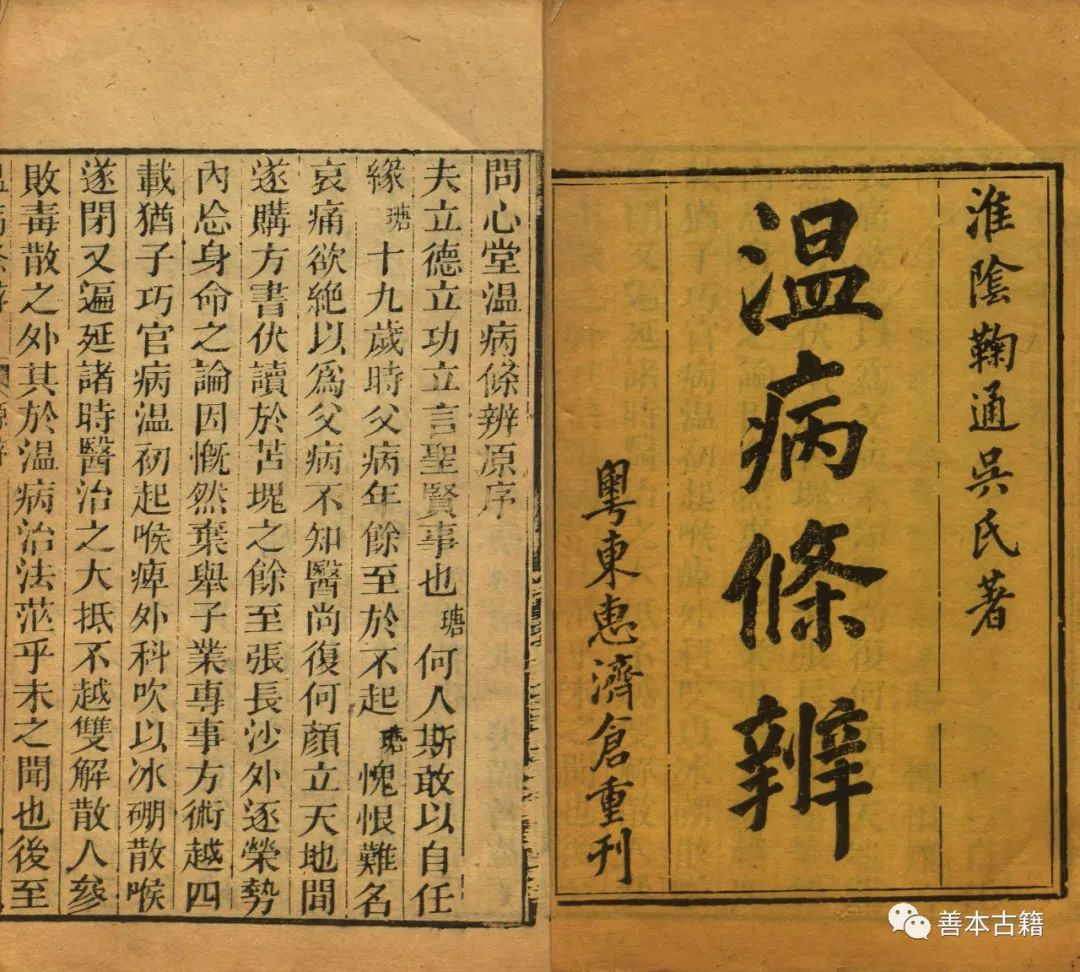 淮陰鞠通吳氏著
温病條辨
粵東惠濟倉重刊
問心堂温病條辨原序
夫立德立功立言聖賢事也瑭何人斯敢以自任
緣瑭十九歲時父病年餘至於不起瑭愧恨難名
哀痛欲絶以爲父病不知醫尚復何顔立天地間
遂購方書伏讀於苫塊之餘至張長沙外逐榮勢
內忩身命之論因慨然棄舉子業專事方術越四
載猶子巧官病温初起喉痺外科吹以冰硼散喉
遂閉又遍延諸時醫治之大抵不越雙解散人參
敗毒散之外其於温病治法茫乎未之聞也後至
善本古籍